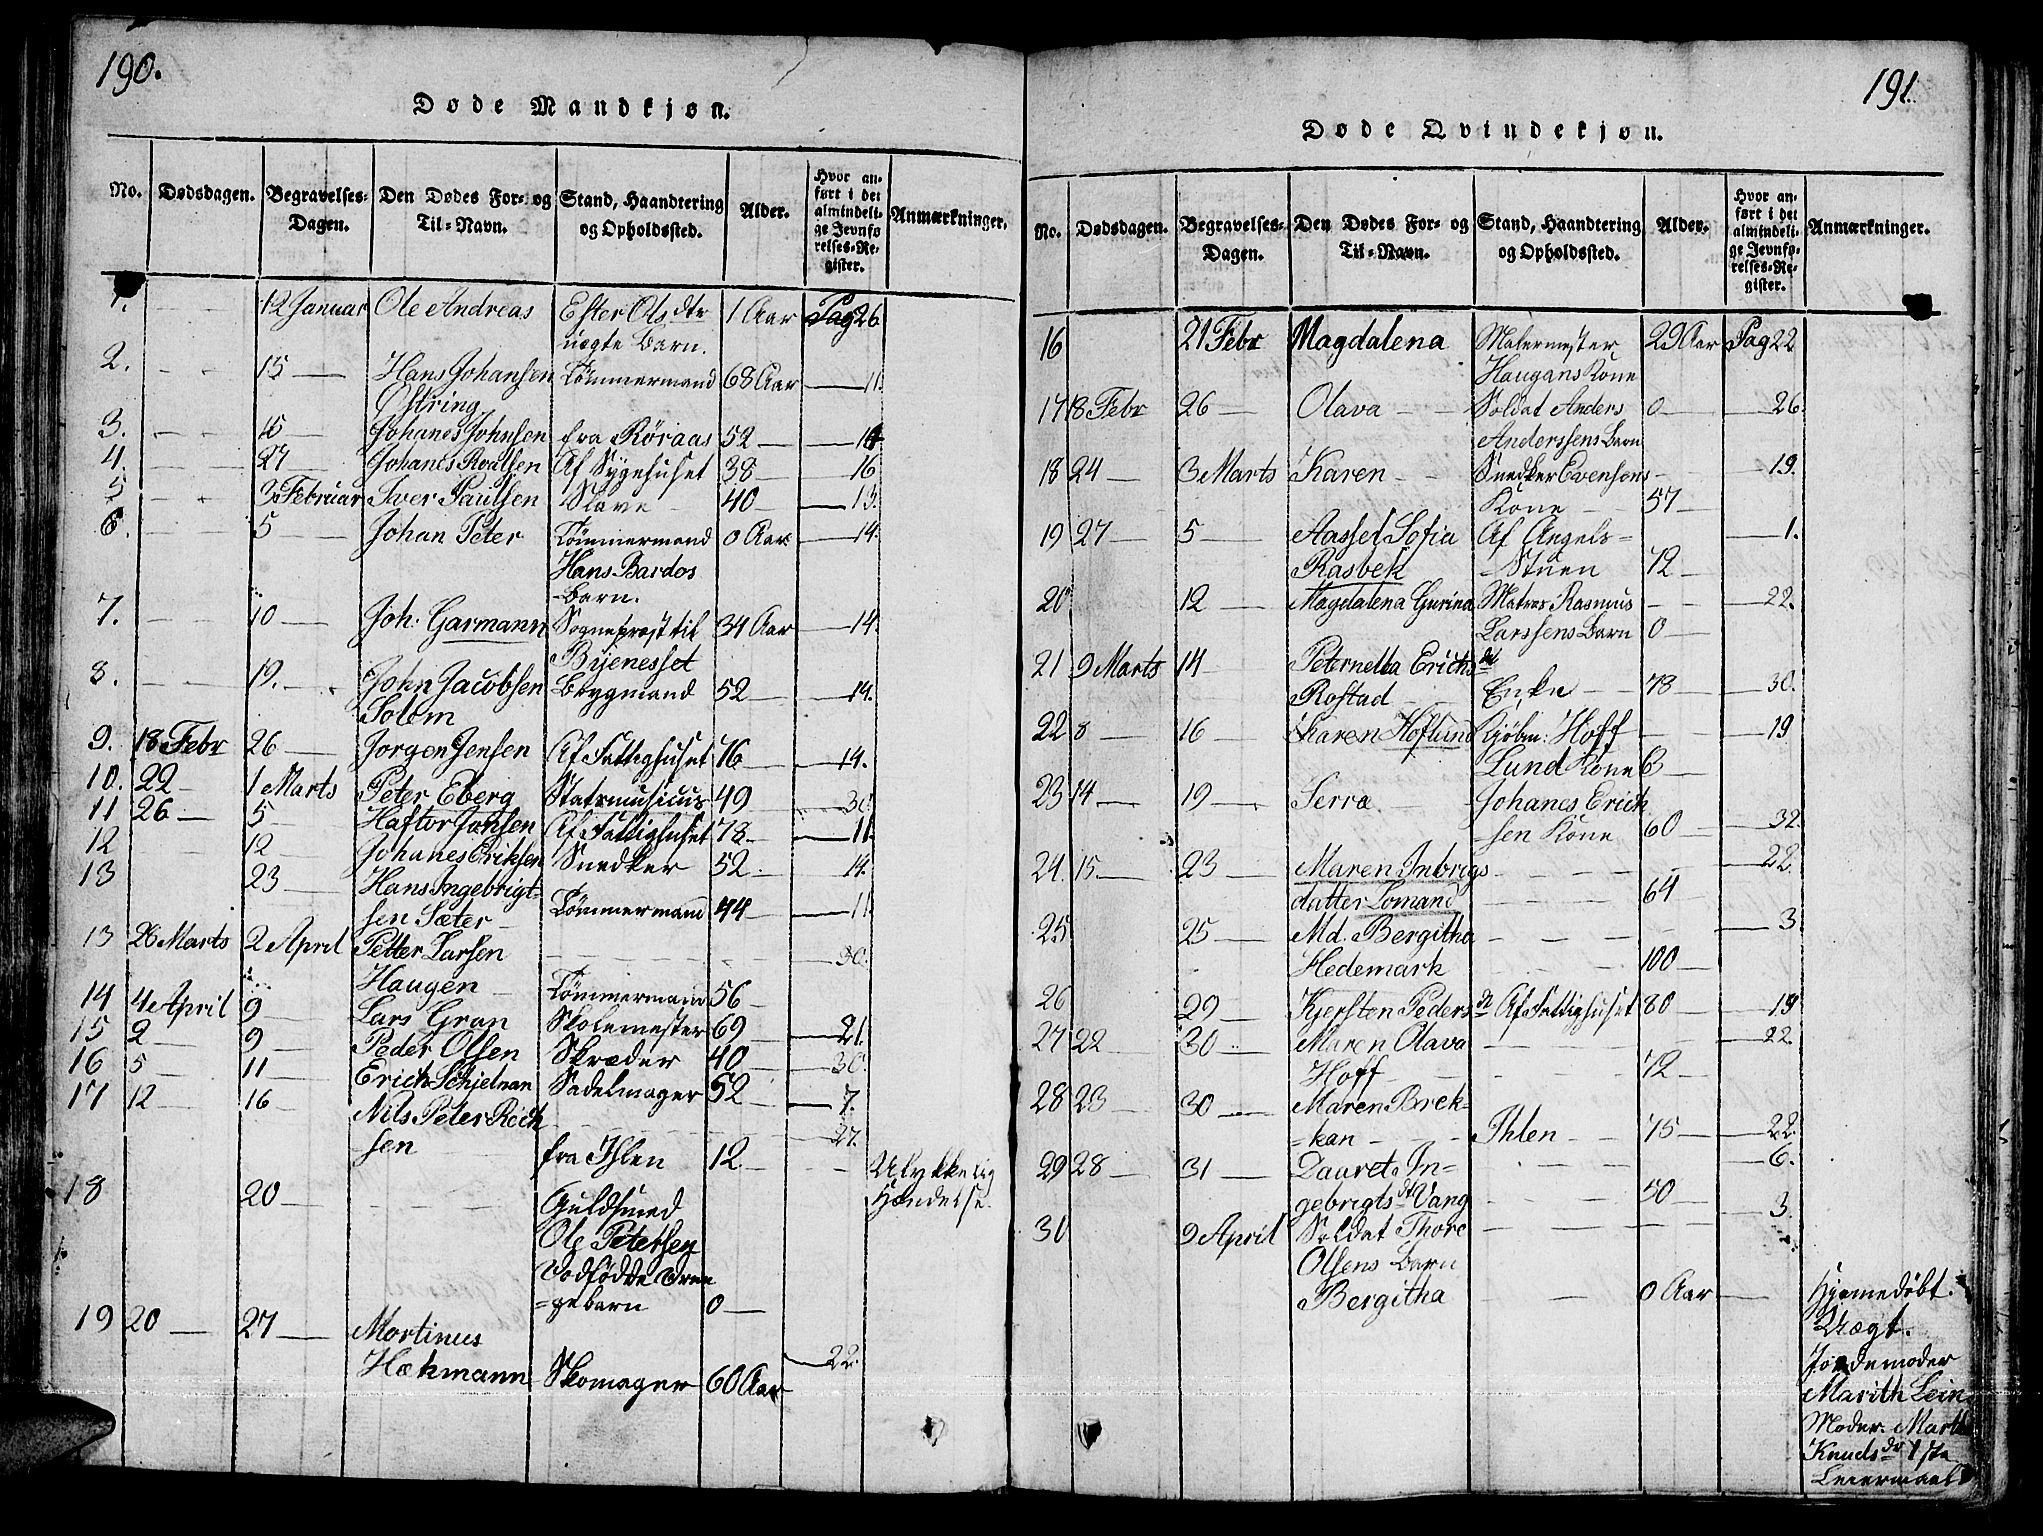 190.
Døde Mandkjøn.
No. Dødsdagen. Begravelses-Dagen. Den Dødes For- og Til-Navn. Stand, Haandtering og Opholdssted. Alder. Hvor anført i det almindelige Jevnførelses-Register. Anmærkninger.
1. 12 Januar Ole Andreas Ester Olsdtr 1 Aar Pag 26
uægte Barn.
2. 15 Hans Johansen Tømmermand 68 Aar 11.
Østring
3. 15 Johanes Johnsen fra Røraas 52
4. 27 Johanes Roalsen Af Sygehuset 38 16
5 30 Februar Iver Paulsen Slave 40 13.
6. 5 Johan Peter Tømmermand 0 Aar 14.
Hans Bardos
Barn.
7. 10 Joh. Garmann Sogneprest til 34 Aar 14.
Bijenesset
8. 19. John Jacobsen Brygmand 52 14.
Solem
9. 18 Febr 26 Jorgen Jensen Af Fattighuset 76 14.
10. 22 1 Marts Peter Eberg Statsmusicus 49 30.
11 26 5 Haftor Jonsen Af Fattighuset 78 11.
12 12 Johanes Eriksen Snedker 52. 14.
13 23 Hans Ingebrigt-
sen Sæter Tømmermand 44 11.
13 26 Marts 2 April Petter Larsen 30.
Haugen Tømmermand 56
14 4 April 9 Lars Gran Skolemester 69 21.
15 2 9 Peder Olsen Skræder 40 30.
16 5 11 Erich Schjelnan Sadelmager 52 7.
17 12 16 Nils Peter Rick 27.
sen fra Ihlen 12 Ulykkelig
18 20 Guldsmed Hændelse.
Ole Petersen
Dodfødde Dren
=gebarn 0
19 20 27 Mortinus 22.
Hækmann Skomager 60 Aar
191.
Døde Qvindekjøn.
No. Dødsdagen. Begravelses-Dagen. Den Dødes For- og Til-Navn. Stand, Haandtering og Opholdssted. Alder. Hvor anført i det almindelige Jevnførelses-Register. Anmærkninger.
16 21 Febr Magdalena Malermester 29 Aar Pag 22
Haugans Kone
17 18 Febr 26 Olava Soldat Anders 0 26.
Anderssens Barn
18 24 3 Marts Karen Snedker Evensens 19.
Kone 57
19 27 5 Aassel Sofia Af Angels= 1.
Rasbek Stuen 72
20 12 Magdalena Gurina Matros Rasmus 22.
Larssens Barn 0
21 9 Marts 14 Peternella Erichsdt
Rostad Enke 78 30.
22 8 16 Karen Hoflund Kjøbm: Hoff 19
Lund Kone
23 14 19 Serra Johanes Erich
sen Kone 60 32.
24. 15 23 Maren Inbrigs 22.
datter Lomand 64
25 25 Md. Bergitha 3
Hedemark 100
26 29 Kjersten Pedersdt Af Fattighuset 80 19
27 22 30 Maren Olava 22.
Hoff 72
28 23 30 Maren Brek-
=kan Ihlen 75 22.
29 28 31 Daaret In= 6.
gebrigtsdt Vang 50
30 9 April Soldat Thore 3.
Olsens Barn
Bergitha 0 Aar Hjemedøbt.
Uægt.
Jordemoder
Marith Lein
Moder. Marth
Knudsdr 1ste
Leiermaal